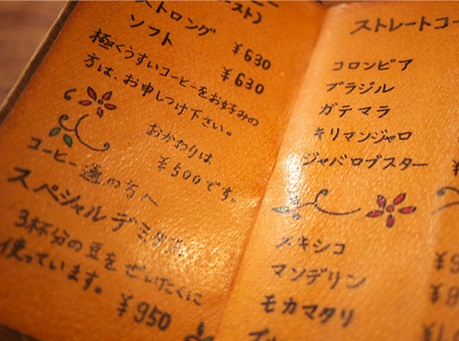 スト)
ストロング ¥630
ソフト ¥630
極くうすいコーヒーをお好みの
方は、お申しつけ下さい。
おかわりは
¥500です。
コーヒー通の方へ
スペシャルデミタス
3杯分の豆をぜいたくに
使っています。
¥950
ストレートコー
コロンビア
ブラジル
ガテマラ
キリマンジャロ
ジャバロブスター
メキシコ
マンデリン
モカマタリ